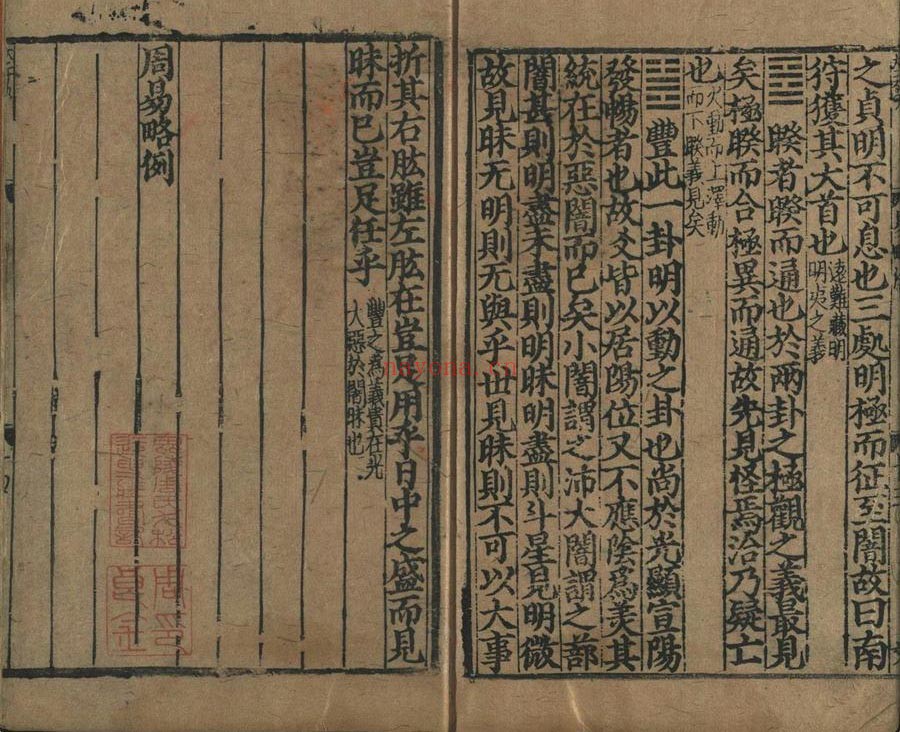 之貞明不可息也三處明極而征至闇故曰南
狩獲其大首也遠難藏明
明夷之義
䷥睽者睽而通也於兩卦之極觀之義最見
矣極睽而合極異而通故先見怪焉洽乃疑亡
也火動而上澤動
而下睽義見矣
䷶豐此一卦明以動之卦也尚於光顯宣陽
發暢者也故爻皆以居陽位又不應陰為美其
統在於惡闇而已矣小闇謂之沛大闇謂之蔀
闇甚則明盡未盡則明昧明盡則斗星見明微
故見昧无明則无與乎世見昧則不可以大事
折其右肱雖左肱在豈足用乎日中之盛而見
昧而已豈足任乎豐之為義貴在光
大惡於闇昧也
周易略例
nayona.cn
周印
良金